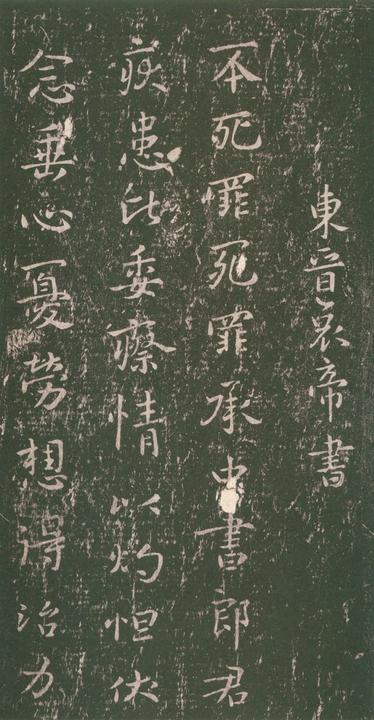 東晉哀帝書
丕死罪死罪承中書郎君
疾患比委瘵情以灼怛伏
念垂心憂勞想得治力